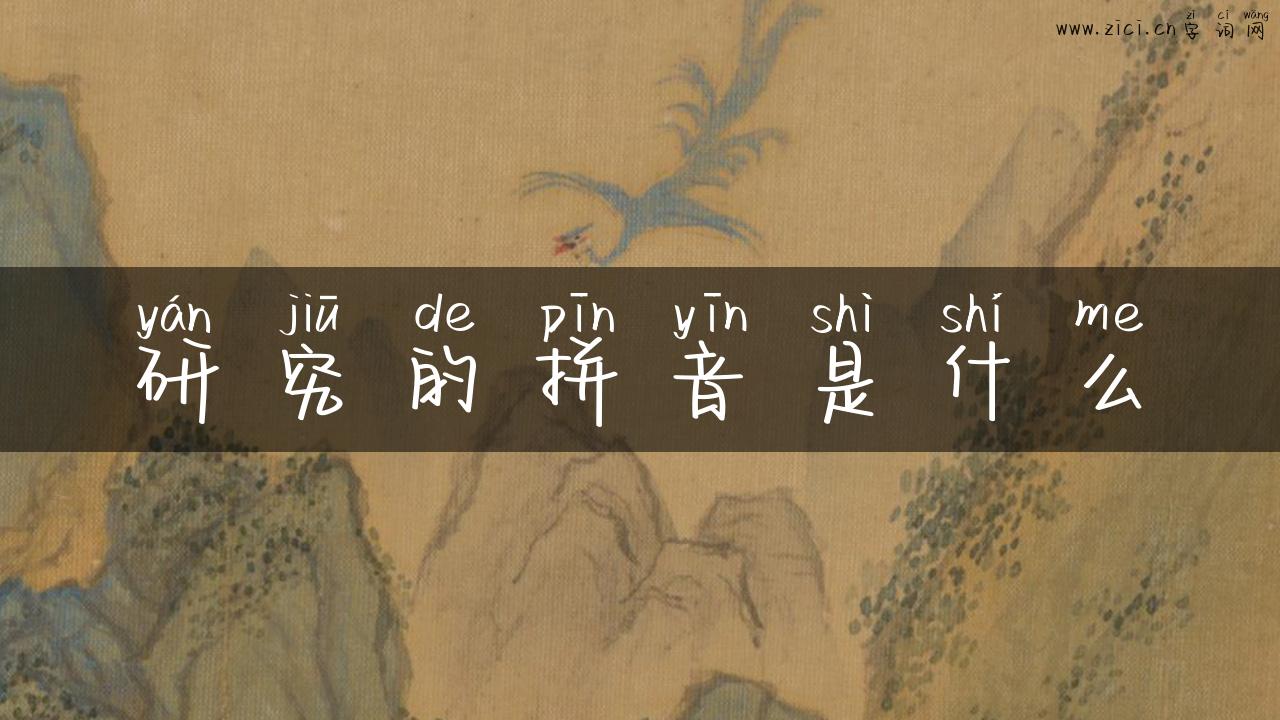 zì cí wǎng
www.zici.cn字词网
yán jiū de pīn yīn shì shí me
研究的拼音是什么